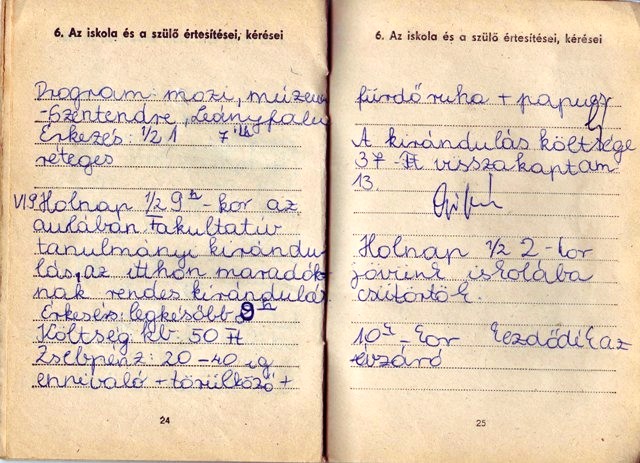 6. Az iskola és a szülő értesítései, kérései
Program: mozi, múzeum
-Szentendre, Leányfalu
Érkezés: 1/2 1 7
réteges
VI9 Holnap 1/2 9h-kor az
aulában Fakultatív
tanulmányi kirándu
lás, az itthon maradók
nak rendes kirándulás
Érkezés: legkésőbb 9h
Költség kb. 50 Ft
Zsebpénz: 20-40 ig
ennivaló + törülköző +
24
6. Az iskola és a szülő értesítései, kérései
fürdőruha + papucs
A kirándulás költsége
37-Ft visszakaptam
13.
Holnap 1/2 2-kor
jövünk iskolába
csütörtök.
10k-kor kezdődik az
évzáró
25